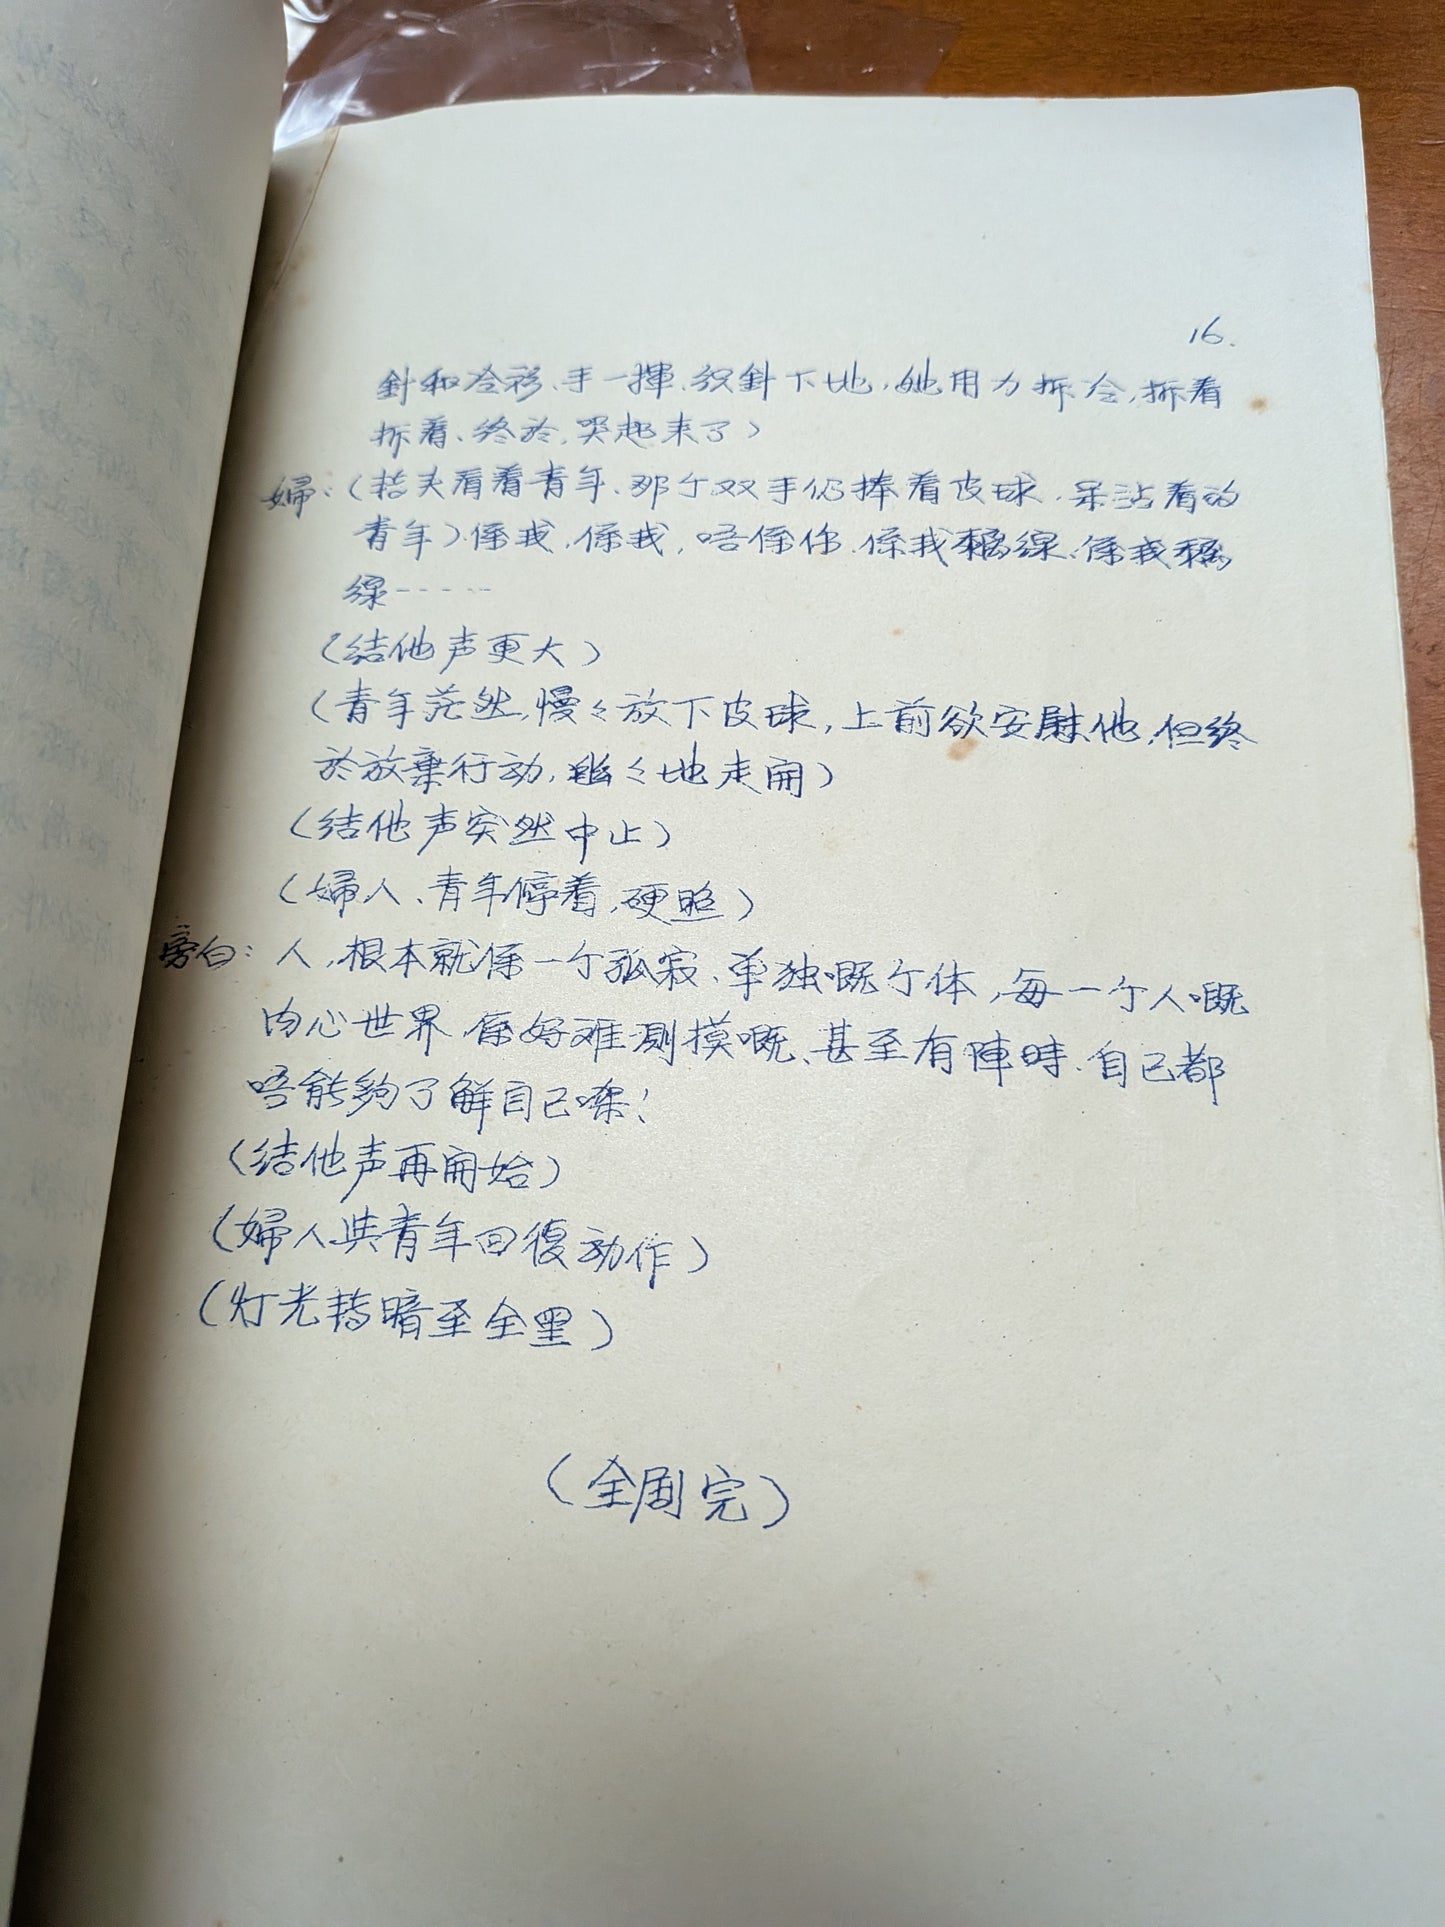 16.
針和冷衫、手一揮、织針下地,她用力拆冷,拆着
拆着、终於,哭起来了)
婦:(抬头看着青年、那个双手仍捧着皮球、呆站着的
青年)係我,係我,唔係你、係我搞综、係我搞
综-----
(结他声更大)
(青年茫然,慢々放下皮球,上前欲安慰他,但终
於放棄行动,幽々地走開)
(结他声突然中止)
(婦人、青年停着,硬照)
旁白:人,根本就係一个孤寂、单独嘅个体,每一个人嘅
内心世界,係好难测摸嘅、甚至有陣時、自己都
唔能夠了解自己㗎!
(结他声再開始)
(婦人与青年回復动作)
(灯光转暗至全黑)
(全剧完)